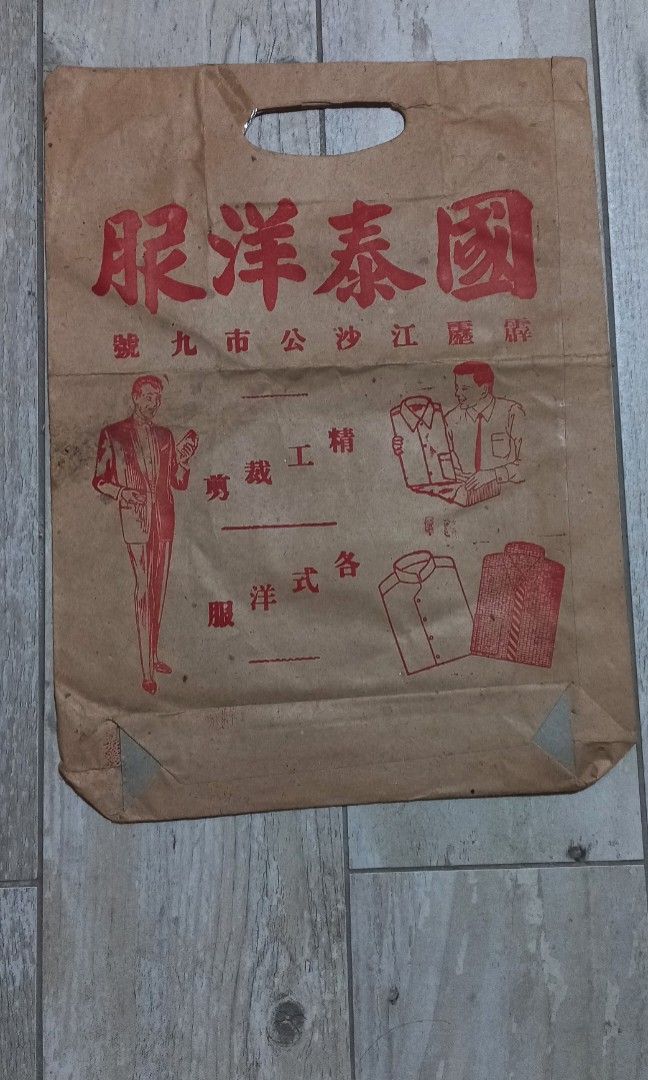 國泰洋服
霹靂江沙公市九號
精工裁剪
各式洋服